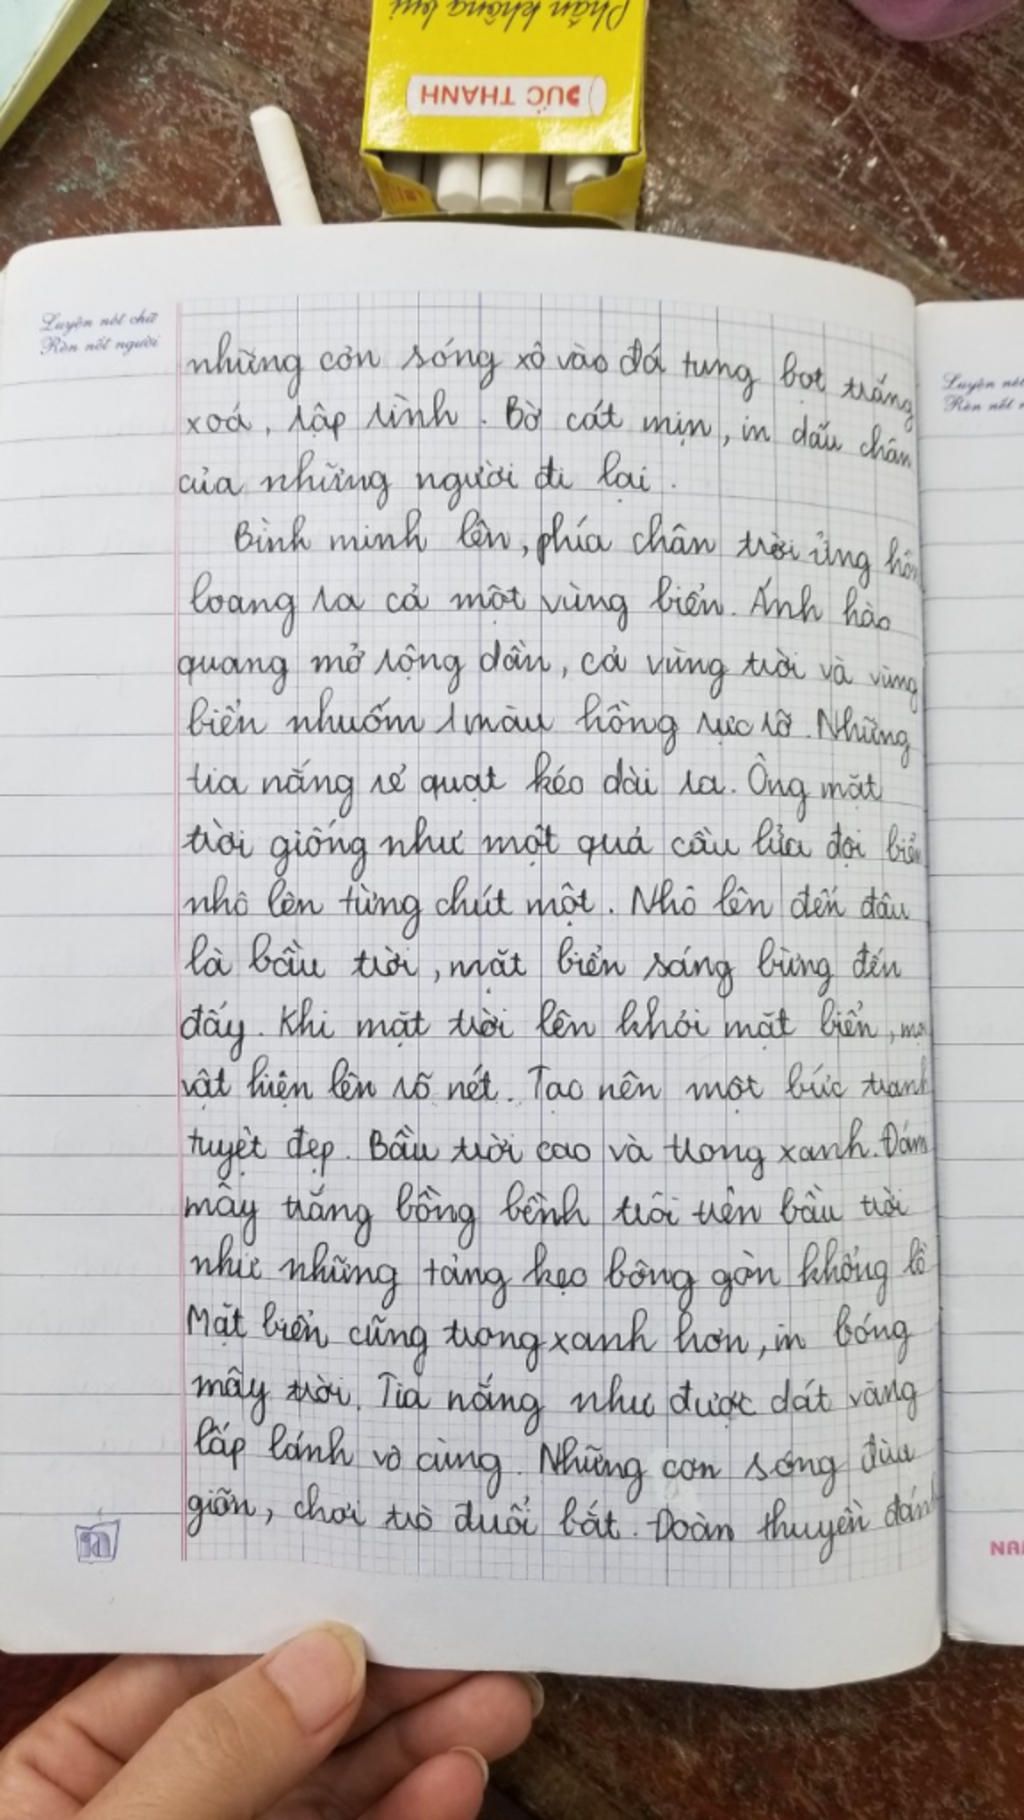 Phấn không bụi
ĐỨC THANH
Luyện nét chữ
Rèn nết người
những cơn sóng xô vào đá tung bọt trắng
xoá, rập rình. Bờ cát mịn, in dấu chân
của những người đi lại.
Bình minh lên, phía chân trời ửng hồn
loang ra cả một vùng biển. Ánh hào
quang mở rộng dần, cả vùng trời và vùng
biển nhuốm 1 màu hồng rực rỡ. Những
tia nắng rẻ quạt kéo dài ra. Ông mặt
trời giống như một quả cầu lửa đội biển
nhô lên từng chút một. Nhô lên đến đâu
là bầu trời, mặt biển sáng bừng đến
đấy. Khi mặt trời lên khỏi mặt biển, mọi
vật hiện lên rõ nét. Tạo nên một bức tranh
tuyệt đẹp. Bầu trời cao và trong xanh. Đám
mây trắng bồng bềnh trôi trên bầu trời
như những tảng kẹo bông gòn khổng lồ
Mặt biển cũng trong xanh hơn, in bóng
mây trời. Tia nắng như được dát vàng
lấp lánh vô cùng. Những con sóng đùa
giỡn, chơi trò đuổi bắt. Đoàn thuyền đánh
Luyện nét
Rèn nết